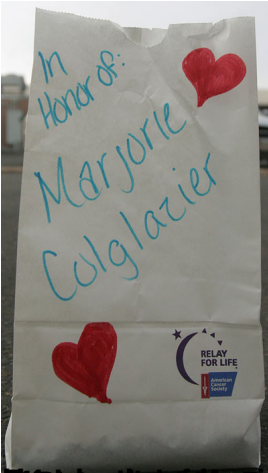 In
Honor of:
Marjorie
Colglazier
RELAY
FOR LIFE
American
Cancer
Society